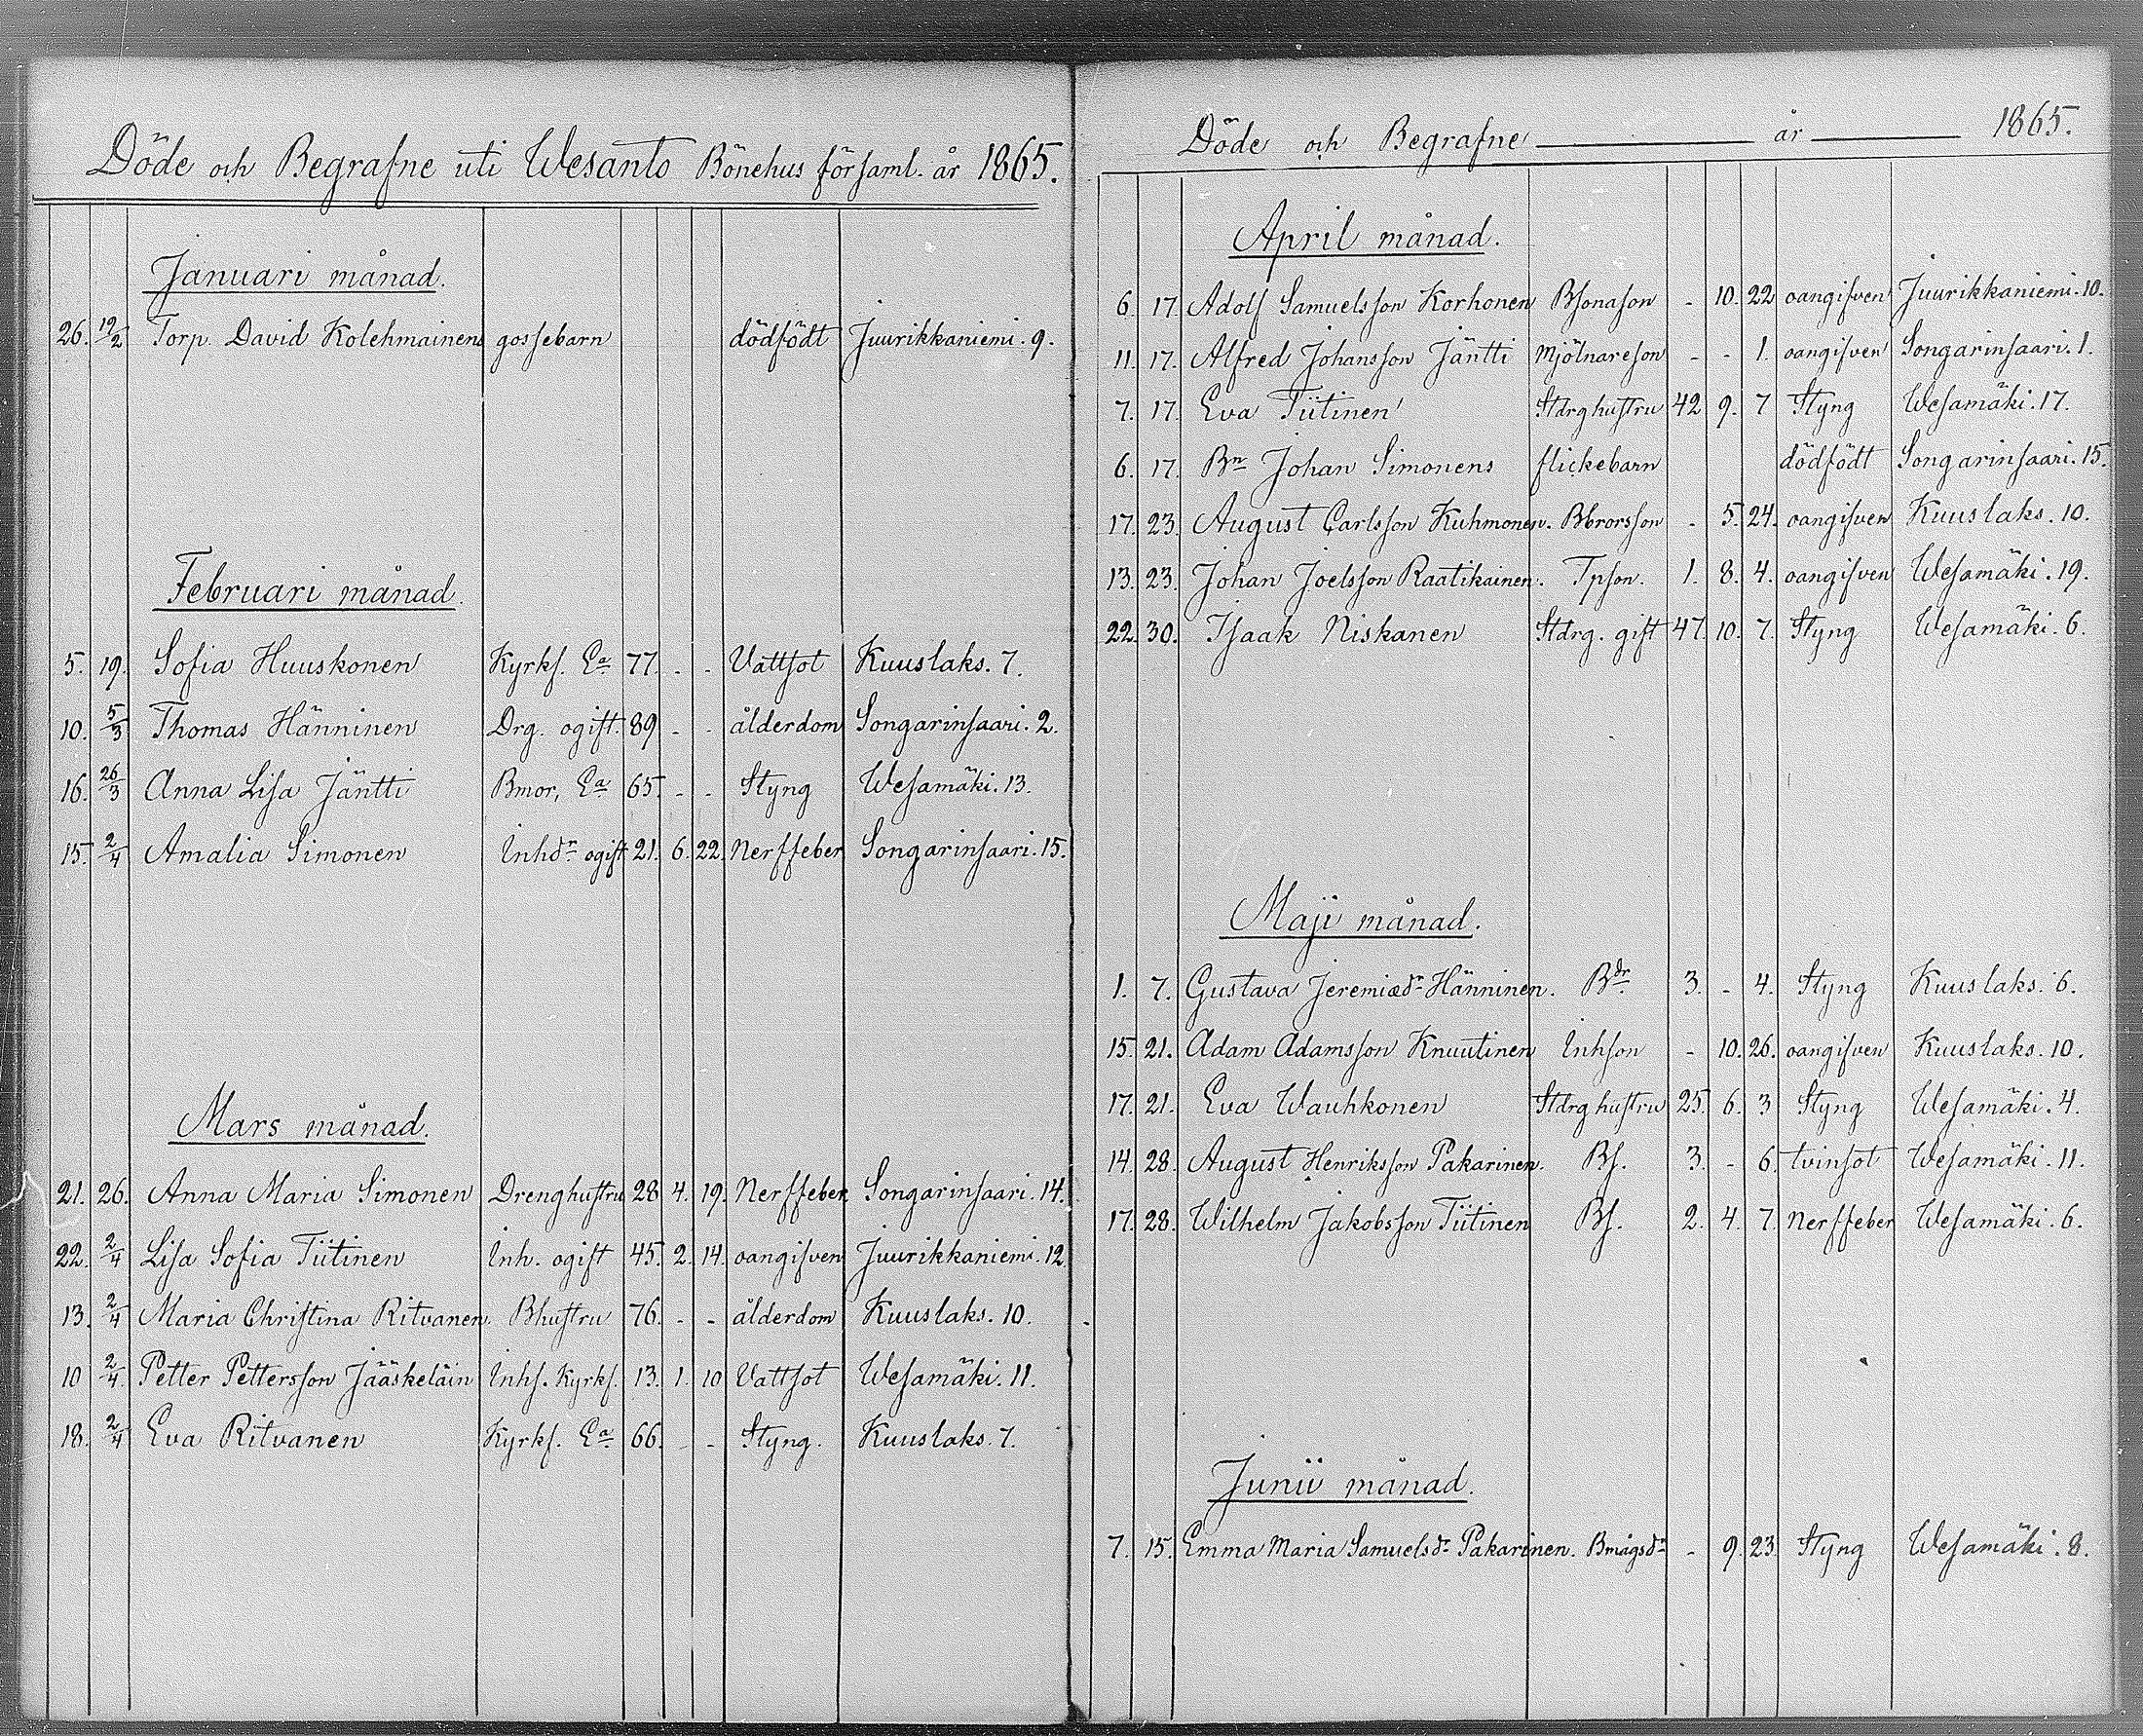 Döde och Begrafne uti Wesanto Bönehus församl. år 1865.
Januari månad.
26. 19/2 Torp. David Kolehmainens gossebarn dödfödt Juurikkaniemi. 9.
Februari månad.
5. 19. Sofia Huuskonen Kyrkf. Ea 77. - - Vattsot Kuuslaks. 7.
10. 5/3 Thomas Hänninen Drg. ogift. 89 - - ålderdom Songarinsaari. 2.
16. 26/3 Anna Lisa Jäntti Bmor, Ea 65. - - Styng Wesamäki. 13.
15. 2/4 Amalia Simonen Inhdr ogift 21. 6. 22. Nerffeber Songarinsaari. 15.
Mars månad.
21. 26. Anna Maria Simonen Drenghustru 28 4. 19. Nerffeber Songarinsaari. 14.
22. 2/4 Lisa Sofia Tiitinen Inh. ogift 45. 2. 14. oangifven Juurikkaniemi. 12.
13. 2/4 Maria Christina Ritvanen. Bhustru 76. - - ålderdom Kuuslaks. 10.
10 2/4 Petter Pettersson Jääskeläin Inhs. Kyrkf. 13. 1. 10 Vattsot Wesamäki. 11.
18. 2/4 Eva Ritvanen Kyrkf. Ea 66. - - Styng. Kuuslaks. 7.
Döde och Begrafne år 1865.
April månad.
6. 17. Adolf Samuelsson Korhonen Bsonason - 10. 22 oangifven Juurikkaniemi. 10.
11. 17. Alfred Johansson Jäntti Mjölnareson - - 1. oangifven Songarinsaari. 1.
7. 17. Eva Tiitinen Stdrghustru 42 9. 7 Styng Wesamäki. 17.
6. 17. Bn Johan Simonens flickebarn dödfödt Songarinsaari. 15.
17. 23. August Carlsson Kuhmonen. Bbrorsson - 5. 24. oangifven Kuuslaks. 10.
13. 23. Johan Joelsson Raatikainen. Tpson. 1. 8. 4. oangifven Wesamäki. 19.
22. 30. Isaak Niskanen Stdrg. gift 47. 10. 7. Styng Wesamäki. 6.
Maji månad.
1. 7. Gustava Jeremiædr Hänninen. Bdr 3. - 4. Styng Kuuslaks. 6.
15. 21. Adam Adamsson Knuutinen Inhson - 10. 26. oangifven Kuuslaks. 10.
17. 21. Eva Wauhkonen Stdrghustru 25. 6. 3 Styng Wesamäki. 4.
14. 28. August Henriksson Pakarinen. Bs. 3. - 6. tvinsot Wesamäki. 11.
17. 28. Wilhelm Jakobsson Tiitinen Bs. 2. 4. 7. Nerffeber Wesamäki. 6.
Junii månad.
7. 15. Emma Maria Samuelsdr Pakarinen. Bmågsdr - 9. 23 Styng Wesamäki. 8.